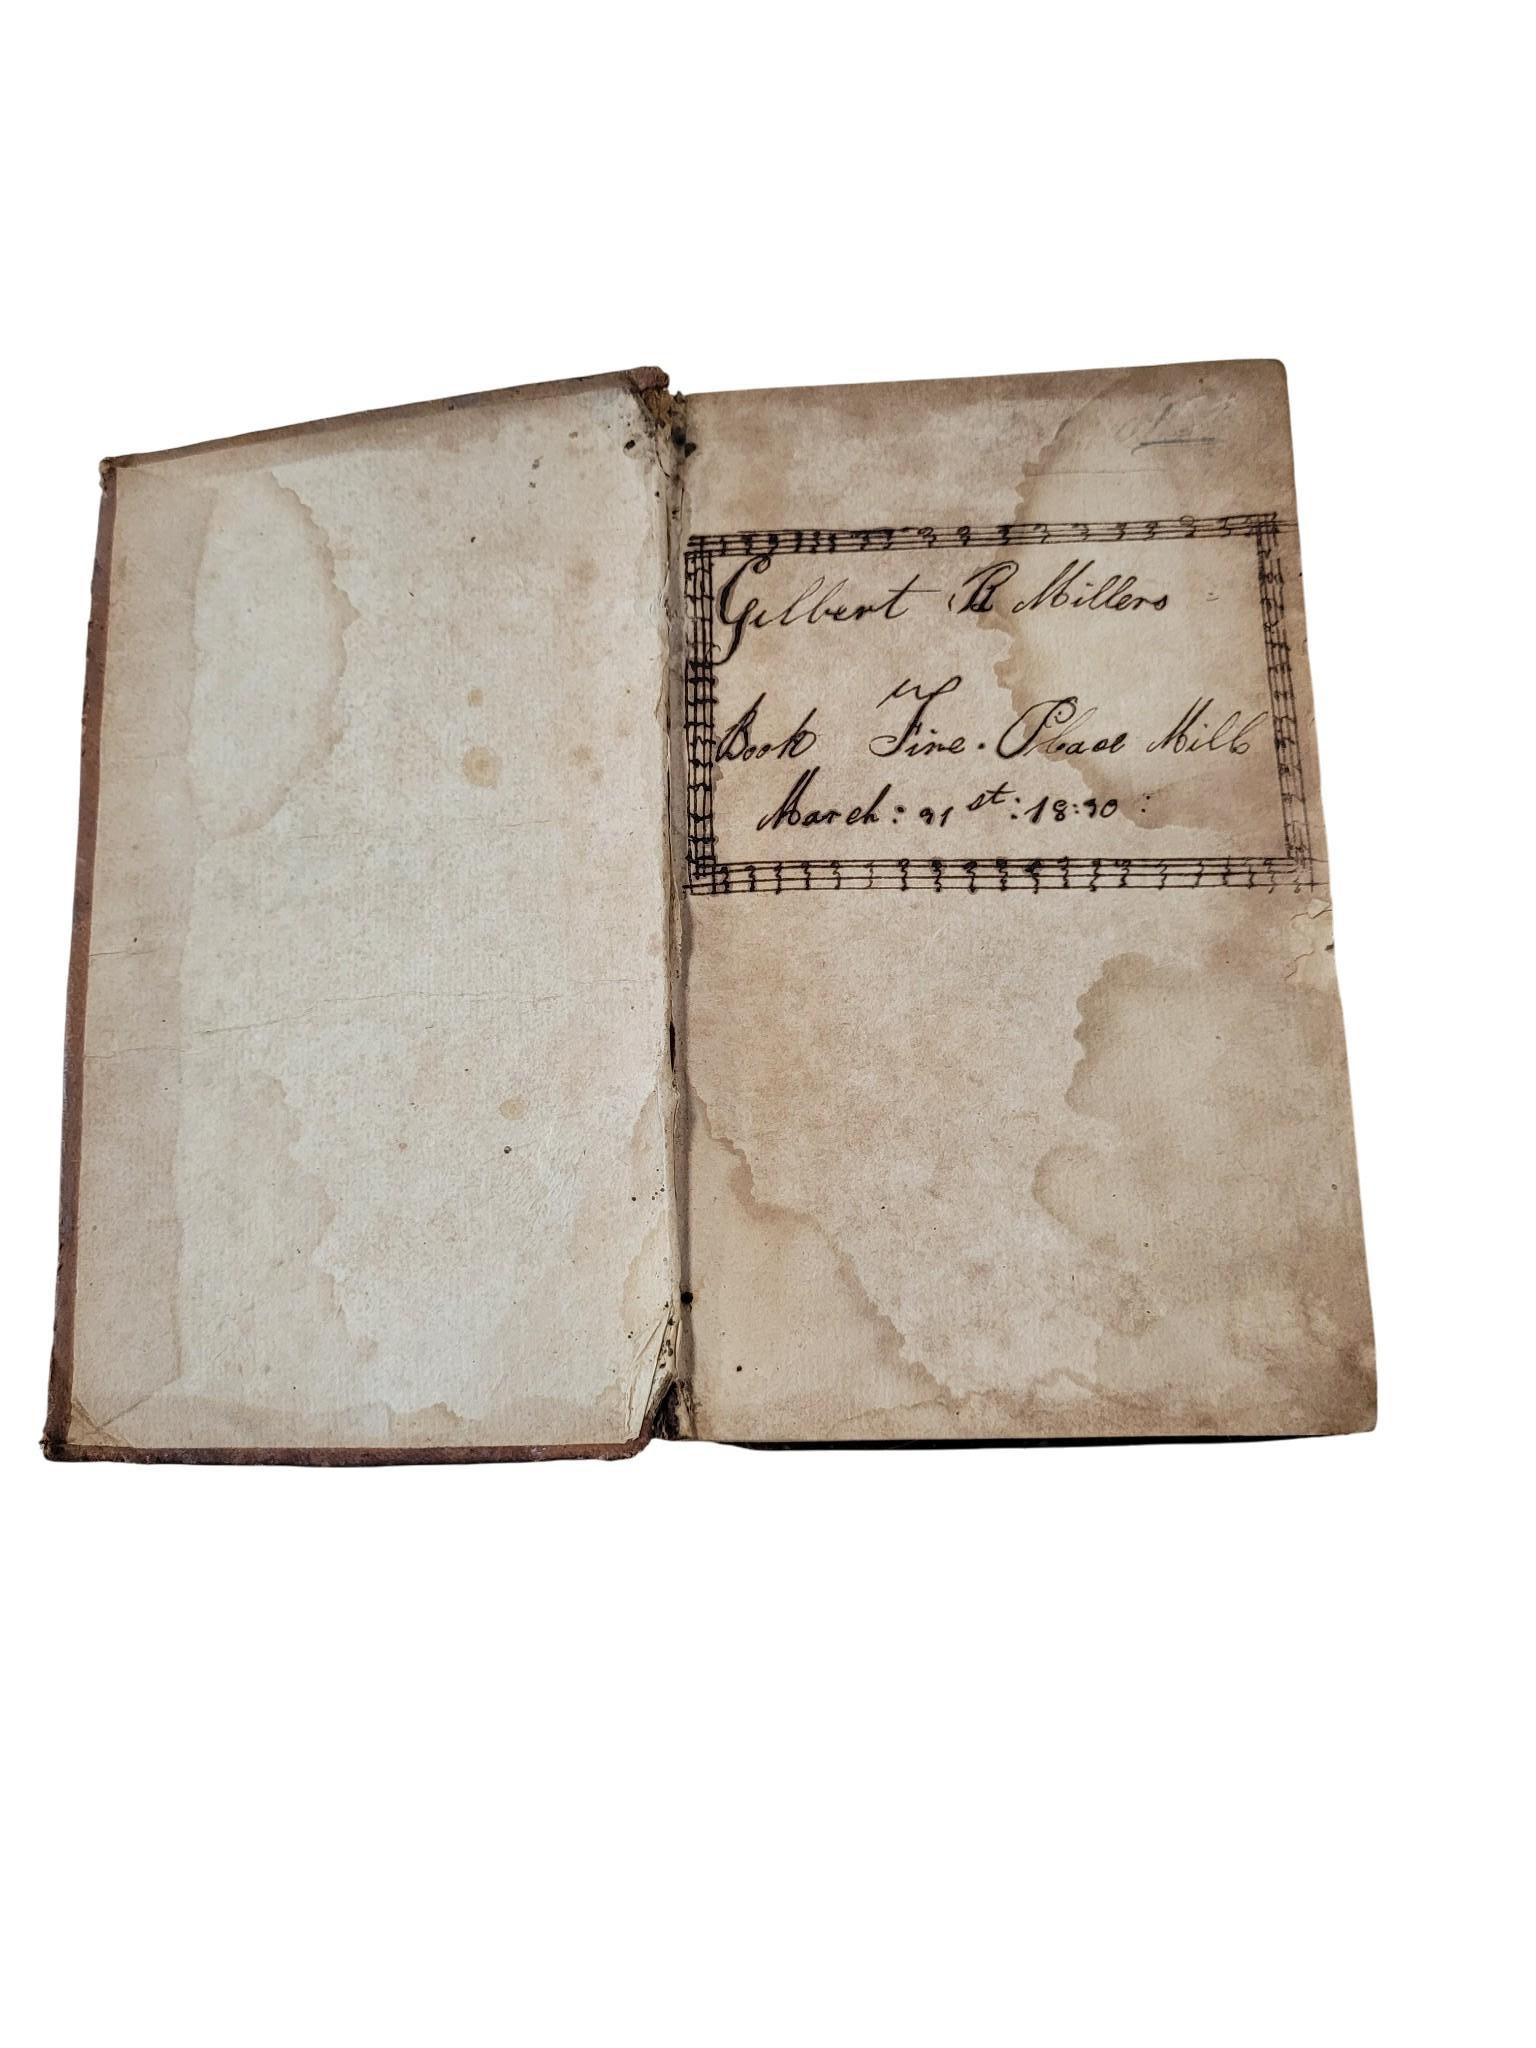 Gilbert R Millers
Book Fire. Place Mills
March: 31st: 18:30: